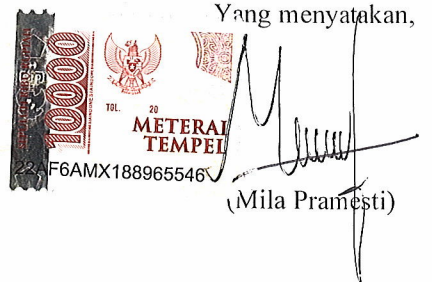 Yang menyatakan,
10000
TGL. 20
METERAI
TEMPEL
22AF6AMX188965546
(Mila Pramesti)